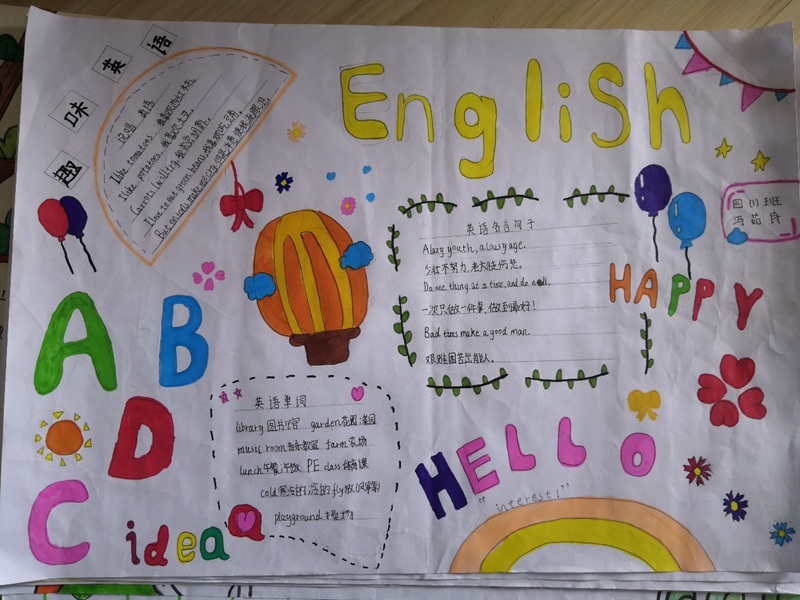 趣味英语
English
说唱英语
I like tomatoes.
I like potatoes.
四(1)班
冯茹诗
英语名言句子
A lazy youth, a lousy age.
少壮不努力,老大徒伤悲。
Do one thing at a time, and do well.
一次只做一件事,做到最好!
Bad times make a good man.
艰难困苦出能人。
HAPPY
A B
D
C
英语单词
library 图书馆 garden 花园;菜园
music room 音乐教室 farm 农场
lunch 午餐;午饭 PE class 体育课
cold 寒冷的;冷的 fly 放(风筝)
playground 操场
HELLO
"interest!"
idea